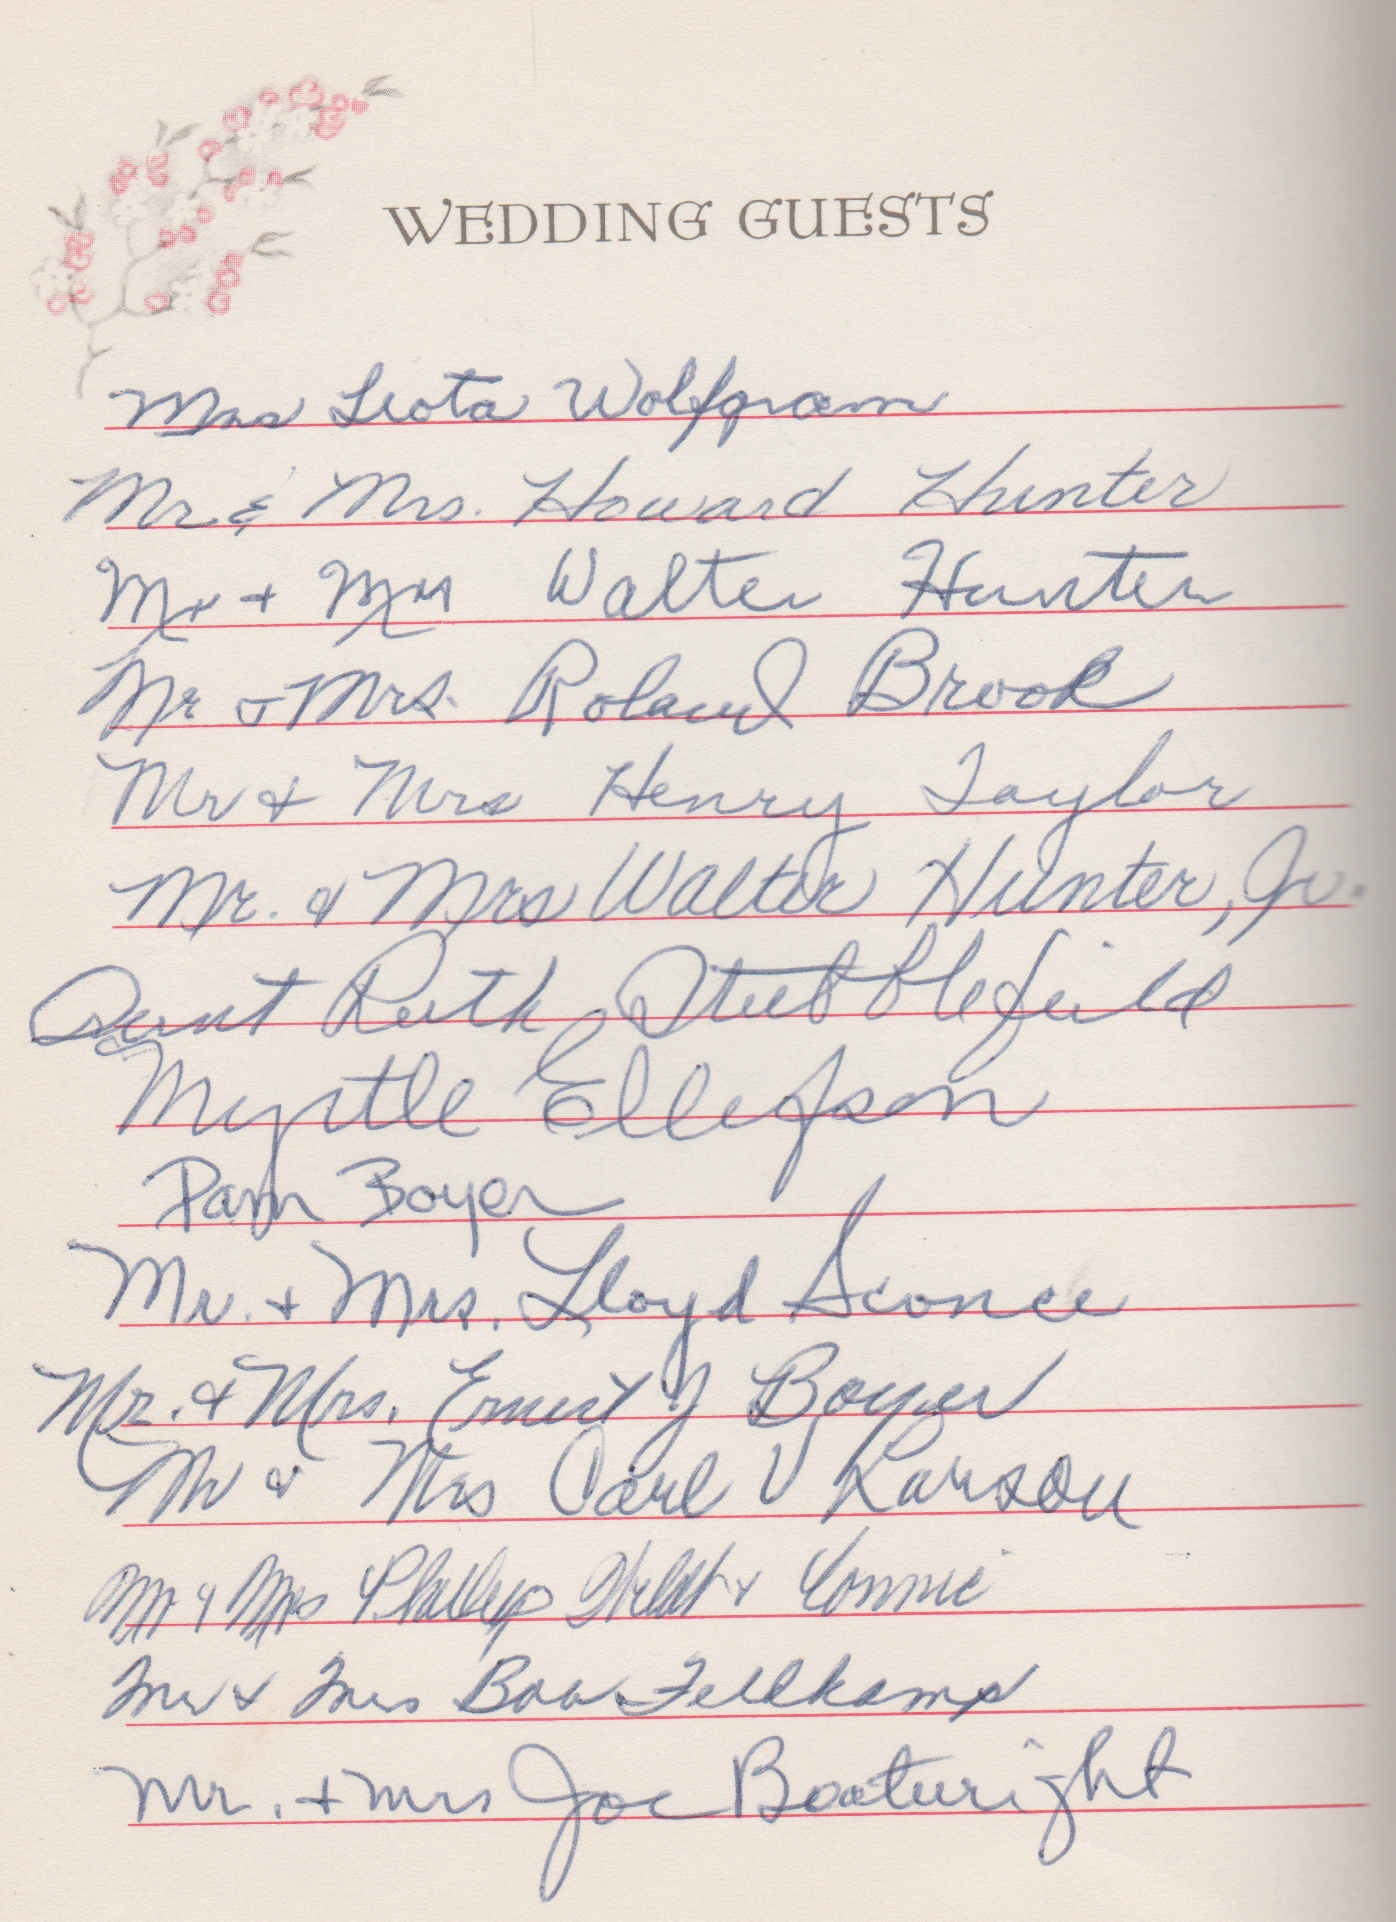 WEDDING GUESTS
Mrs Leota Wolfgram
Mr & Mrs. Howard Hunter
Mr + Mrs Walter Hunter
Mr & Mrs. Roland Brook
Mr & Mrs Henry Taylor
Mr. & Mrs Walter Hunter, Jr.
Aunt Ruth Stubblefield
Myrtle Ellefson
Pam Boyer
Mr. + Mrs. Lloyd Sconce
Mr. & Mrs. Ernest J Boyer
Mr & Mrs Carl V Larson
Mr & Mrs Phillip & Connie
Mr & Mrs Fellkamp
Mr. + Mrs Joe Boatwright